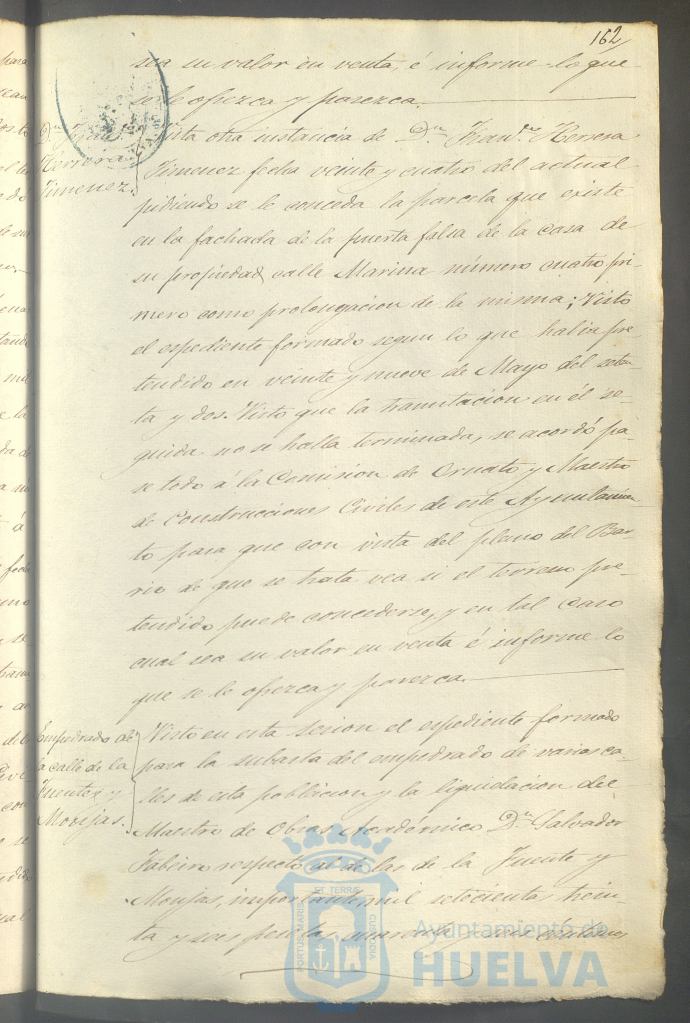 162
sea su valor en venta, é informe lo que
se le ofrezca y parezca.
Dn. Franco.
Herrera
Jimenez.
Vista otra instancia de Dn. Franco. Herrera
Jimenez fecha veinte y cuatro del actual
pidiendo se le conceda la parcela que existe
en la fachada de la puerta falsa de la casa de
su propiedad calle Marina número cuatro pri-
mero como prolongacion de la misma; Visto
el espediente formado segun lo que habia pre-
tendido en veinte y nueve de Mayo del seten-
ta y dos. Visto que la tramitacion en él se-
guida no se halla terminada, se acordó pa-
se todo á la Comision de Ornato y Maestro
de Construcciones Civiles de este Ayuntamien-
to para que con vista del plano del Bar-
rio de que se trata vea si el terreno pre-
tendido puede concederse, y en tal caso
cual sea su valor en venta é informe lo
que se le ofrezca y parezca.
Empedrado de
la calle de la
Fuente y
Monjas.
Visto en esta sesion el espediente formado
para la subasta del empedrado de varias ca-
lles de esta poblacion y la liquidacion del
Maestro de Obras Académico Dn. Salvador
respecto al de las de la Fuente y
Monjas, importante mil setecientas trein-
ta y seis pesetas, cuarenta y seis céntimos
PORTUS MARIS ET TERRAE CUSTODIA
Ayuntamiento de
HUELVA